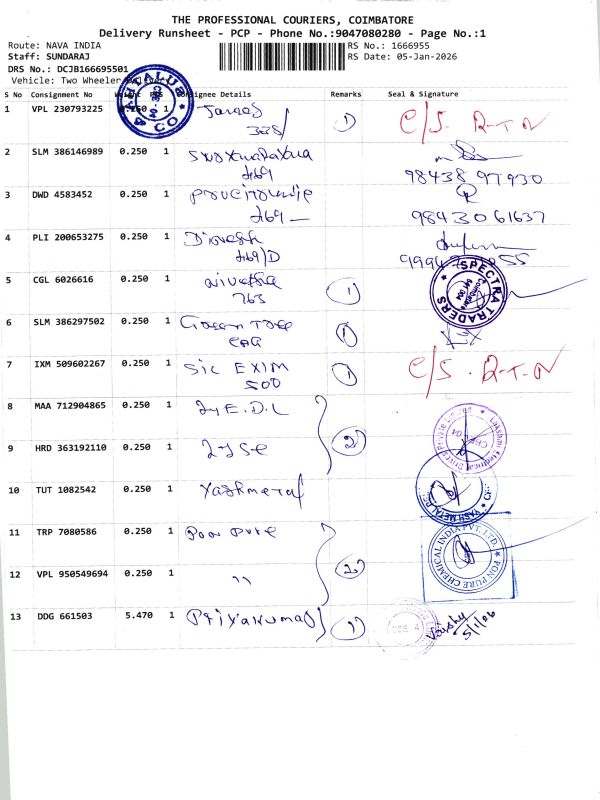 THE PROFESSIONAL COURIERS, COIMBATORE
Delivery Runsheet - PCP - Phone No.:9047080280 - Page No.:1
Route: NAVA INDIA RS No.: 1666955
Staff: SUNDARAJ RS Date: 05-Jan-2026
DRS No.: DCJB166695501
Vehicle: Two Wheeler
S No Consignment No Weight Pcs Consignee Details Remarks Seal & Signature
1 VPL 230793225 0.250 1 C/S. R-T-N
2 SLM 386146989 0.250 1
469 98438 97930
3 DWD 4583452 0.250 1
469 98430 61637
4 PLI 200653275 0.250 1 Dinesh
469/D
5 CGL 6026616 0.250 1 nivetha 1
763
SPECTRA TRADERS
6 SLM 386297502 0.250 1 Green Tree 1
7 IXM 509602267 0.250 1 Sic EXIM 1 C/S. R-T-N
500
8 MAA 712904865 0.250 1 E.D.L 2
9 HRD 363192110 0.250 1
10 TUT 1082542 0.250 1 Yashmetal
YASH METAL
11 TRP 7080586 0.250 1 Pon Pure 2
PON PURE CHEMICAL INDIA PVT. LTD.
12 VPL 950549694 0.250 1 "
13 DDG 661503 5.470 1 Priyakumar 1
5/1/06